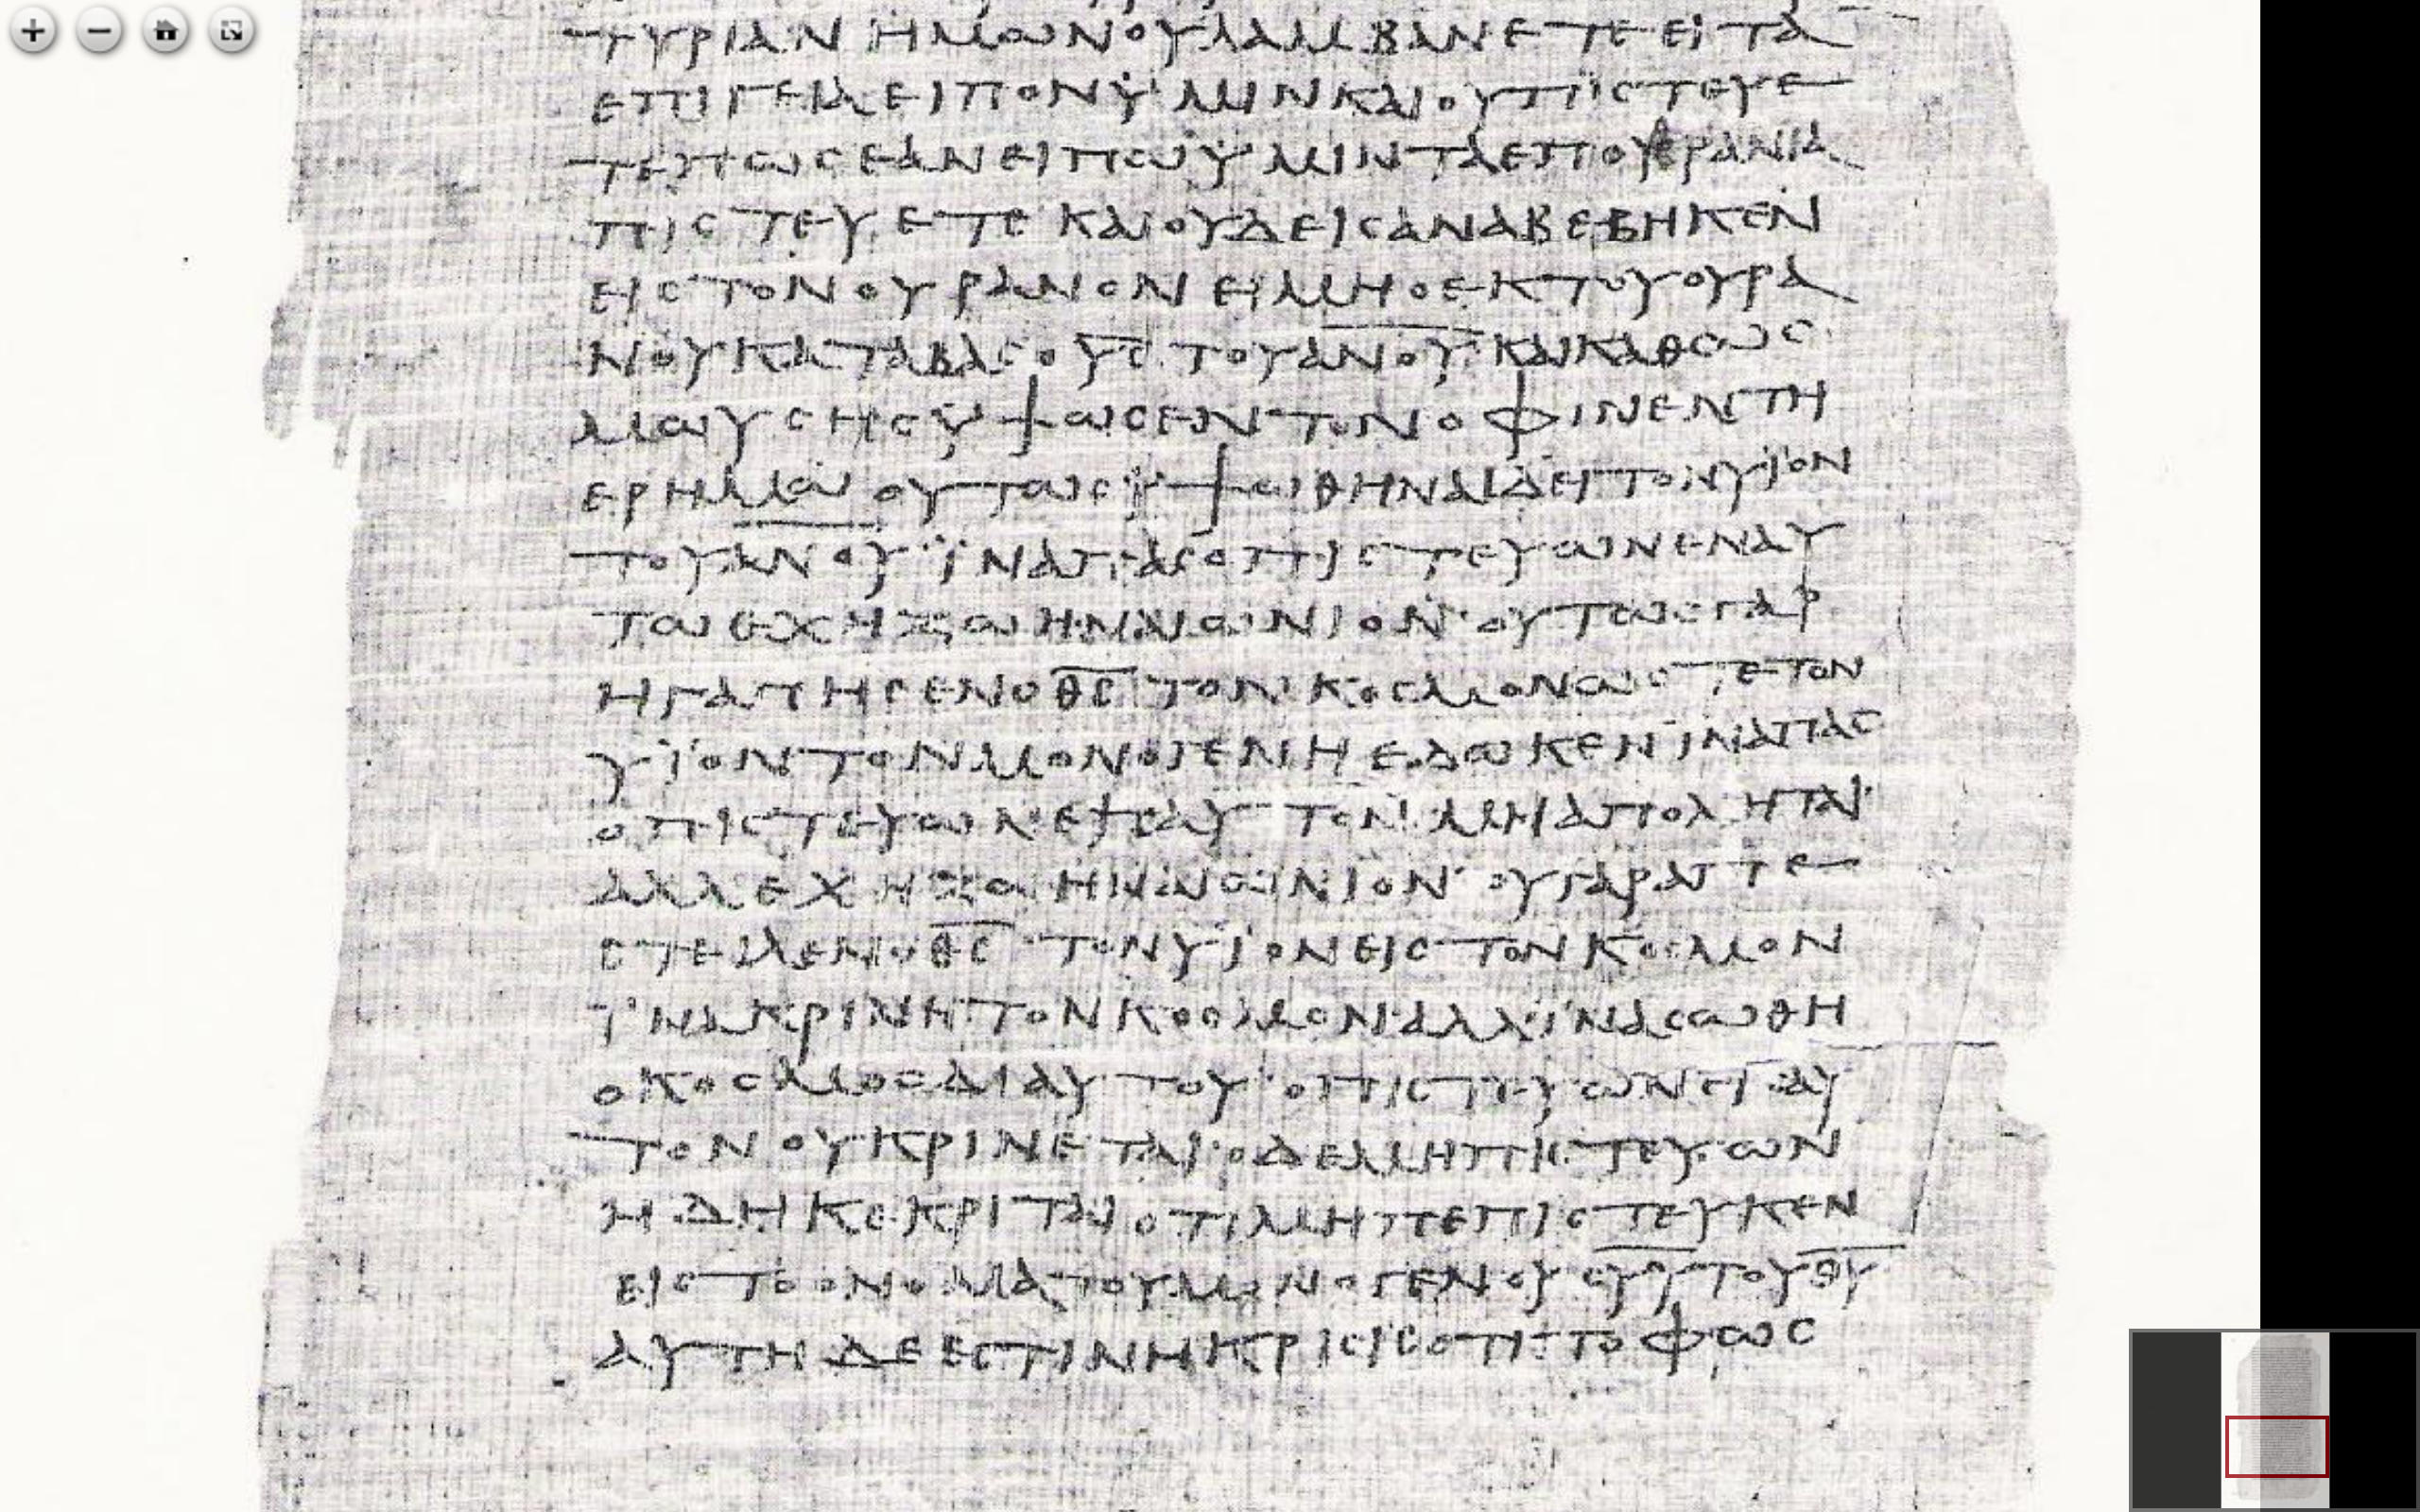 ΤΥΡΙΑΝ ΗΜΩΝ ΟΥ ΛΑΜΒΑΝΕΤΕ ΕΙ ΤΑ
ΕΠΙΓΕΙΑ ΕΙΠΟΝ ΫΜΙΝ ΚΑΙ ΟΥ ΠΙСΤΕΥΕ
ΤΕ ΠΩС ΕΑΝ ΕΙΠΩ ΫΜΙΝ ΤΑ ΕΠΟΥΡΑΝΙΑ
ΠΙСΤΕΥΕΤΕ ΚΑΙ ΟΥΔΕΙС ΑΝΑΒΕΒΗΚΕΝ
ΕΙС ΤΟΝ ΟΥΡΑΝΟΝ ΕΙ ΜΗ Ο ΕΚ ΤΟΥ ΟΥΡΑ
ΝΟΥ ΚΑΤΑΒΑС Ο Υ̅С̅ ΤΟΥ Α̅Ν̅Ο̅Υ̅ ΚΑΙ ΚΑΘΩС
ΜΩΥСΗС ΫΨΩСΕΝ ΤΟΝ ΟΦΙΝ ΕΝ ΤΗ
ΕΡΗΜΩ ΟΥΤΩС ΫΨΩΘΗΝΑΙ ΔΕΙ ΤΟΝ ΥΪΟΝ
ΤΟΥ Α̅Ν̅Ο̅Υ̅ ΪΝΑ ΠΑС Ο ΠΙСΤΕΥΩΝ ΕΝ ΑΥ
ΤΩ ΕΧΗ ΖΩΗΝ ΑΙΩΝΙΟΝ· ΟΥΤΩС ΓΑΡ
ΗΓΑΠΗСΕΝ Ο Θ̅С̅ ΤΟΝ ΚΟСΜΟΝ ΩСΤΕ ΤΟΝ
ΥΪΟΝ ΤΟΝ ΜΟΝΟΓΕΝΗ ΕΔΩΚΕΝ ΪΝΑ ΠΑС
Ο ΠΙСΤΕΥΩΝ ΕΠ ΑΥΤΟΝ ΜΗ ΑΠΟΛΗΤΑΙ·
ΑΛΛ ΕΧΗ ΖΩΗΝ ΑΙΩΝΙΟΝ· ΟΥ ΓΑΡ ΑΠΕ
СΤΕΙΛΕΝ Ο Θ̅С̅ ΤΟΝ ΥΪΟΝ ΕΙС ΤΟΝ ΚΟСΜΟΝ
ΪΝΑ ΚΡΙΝΗ ΤΟΝ ΚΟСΜΟΝ ΑΛΛ ΪΝΑ СΩΘΗ
Ο ΚΟСΜΟС ΔΙ ΑΥΤΟΥ· Ο ΠΙСΤΕΥΩΝ ΕΙС ΑΥ
ΤΟΝ ΟΥ ΚΡΙΝΕΤΑΙ· Ο ΔΕ ΜΗ ΠΙСΤΕΥΩΝ
ΗΔΗ ΚΕΚΡΙΤΑΙ ΟΤΙ ΜΗ ΠΕΠΙСΤΕΥΚΕΝ
ΕΙС ΤΟ ΟΝΟΜΑ ΤΟΥ ΜΟΝΟΓΕΝΟΥС Υ̅Υ̅ ΤΟΥ Θ̅Υ̅
ΑΥΤΗ ΔΕ ΕСΤΙΝ Η ΚΡΙСΙС ΟΤΙ ΤΟ ΦΩС